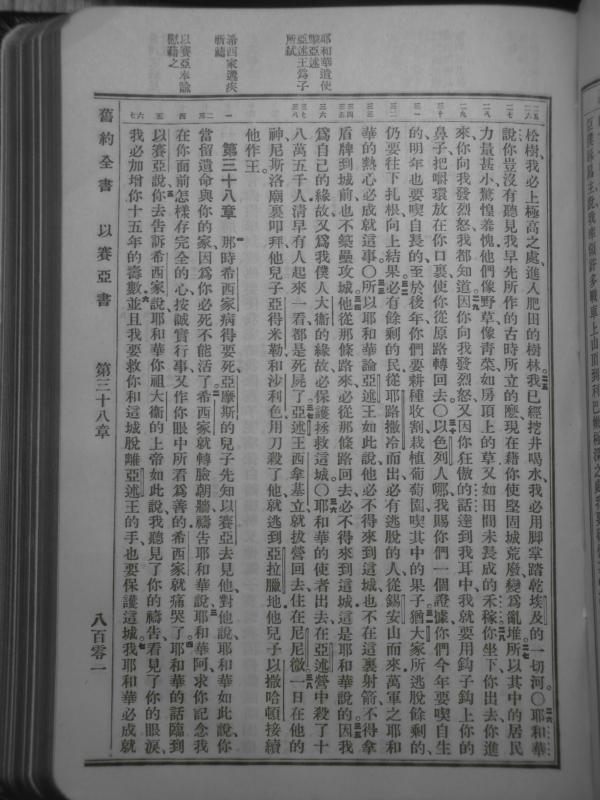 耶和華遣使
擊亞述
亞述王爲子
所弒
希西家遘疾
祈禱
以賽亞奉諭
慰藉之
松樹我必上極高之處進入肥田的樹林我已經挖井喝水我必用脚掌踏乾埃及的一切河〇耶和華
說你豈沒有聽見我早先所作的古時所立的麽現在藉你使堅固城荒廢變爲亂堆所以其中的居民
力量甚小驚惶羞愧他們像野草像靑菜如房頂上的草又如田間未長成的禾稼你坐下你出去你進
來你向我發烈怒我都知道因你向我發烈怒又因你狂傲的話達到我耳中我就要用鈎子鈎上你的
鼻子把嚼環放在你口裏使你從原路轉回去〇以色列人哪我賜你們一個證據你們今年要喫自生
的明年也要喫自長的至於後年你們要耕種收割栽植葡萄園喫其中的果子猶大家所逃脫餘剩的
仍要往下扎根向上結果必有餘剩的民從耶路撒冷而出必有逃脫的人從錫安山而來萬軍之耶和
華的熱心必成就這事〇所以耶和華論亞述王如此說他必不得來到這城也不在這裏射箭不得拿
盾牌到城前也不築壘攻城他從那條路來必從那條路回去必不得來到這城這是耶和華說的因我
爲自己的緣故又爲我僕人大衞的緣故必保護拯救這城〇耶和華的使者出去在亞述營中殺了十
八萬五千人淸早有人起來一看都是死屍了亞述王西拿基立就拔營回去住在尼尼微一日在他的
神尼斯洛廟裏叩拜他兒子亞得米勒和沙利色用刀殺了他就逃到亞拉臘地他兒子以撒哈頓接續
他作王
第三十八章 那時希西家病得要死亞摩斯的兒子先知以賽亞去見他對他說耶和華如此說你
當留遺命與你的家因爲你必死不能活了希西家就轉臉朝牆禱吿耶和華說耶和華阿求你記念我
在你面前怎樣存完全的心按誠實行事又作你眼中所看爲善的希西家就痛哭了耶和華的話臨到
以賽亞說你去吿訴希西家說耶和華你祖大衞的上帝如此說我聽見了你的禱吿看見了你的眼淚
我必加增你十五年的壽數並且我要救你和這城脫離亞述王的手也要保護這城我耶和華必成就
舊約全書 以賽亞書 第三十八章 八百零一